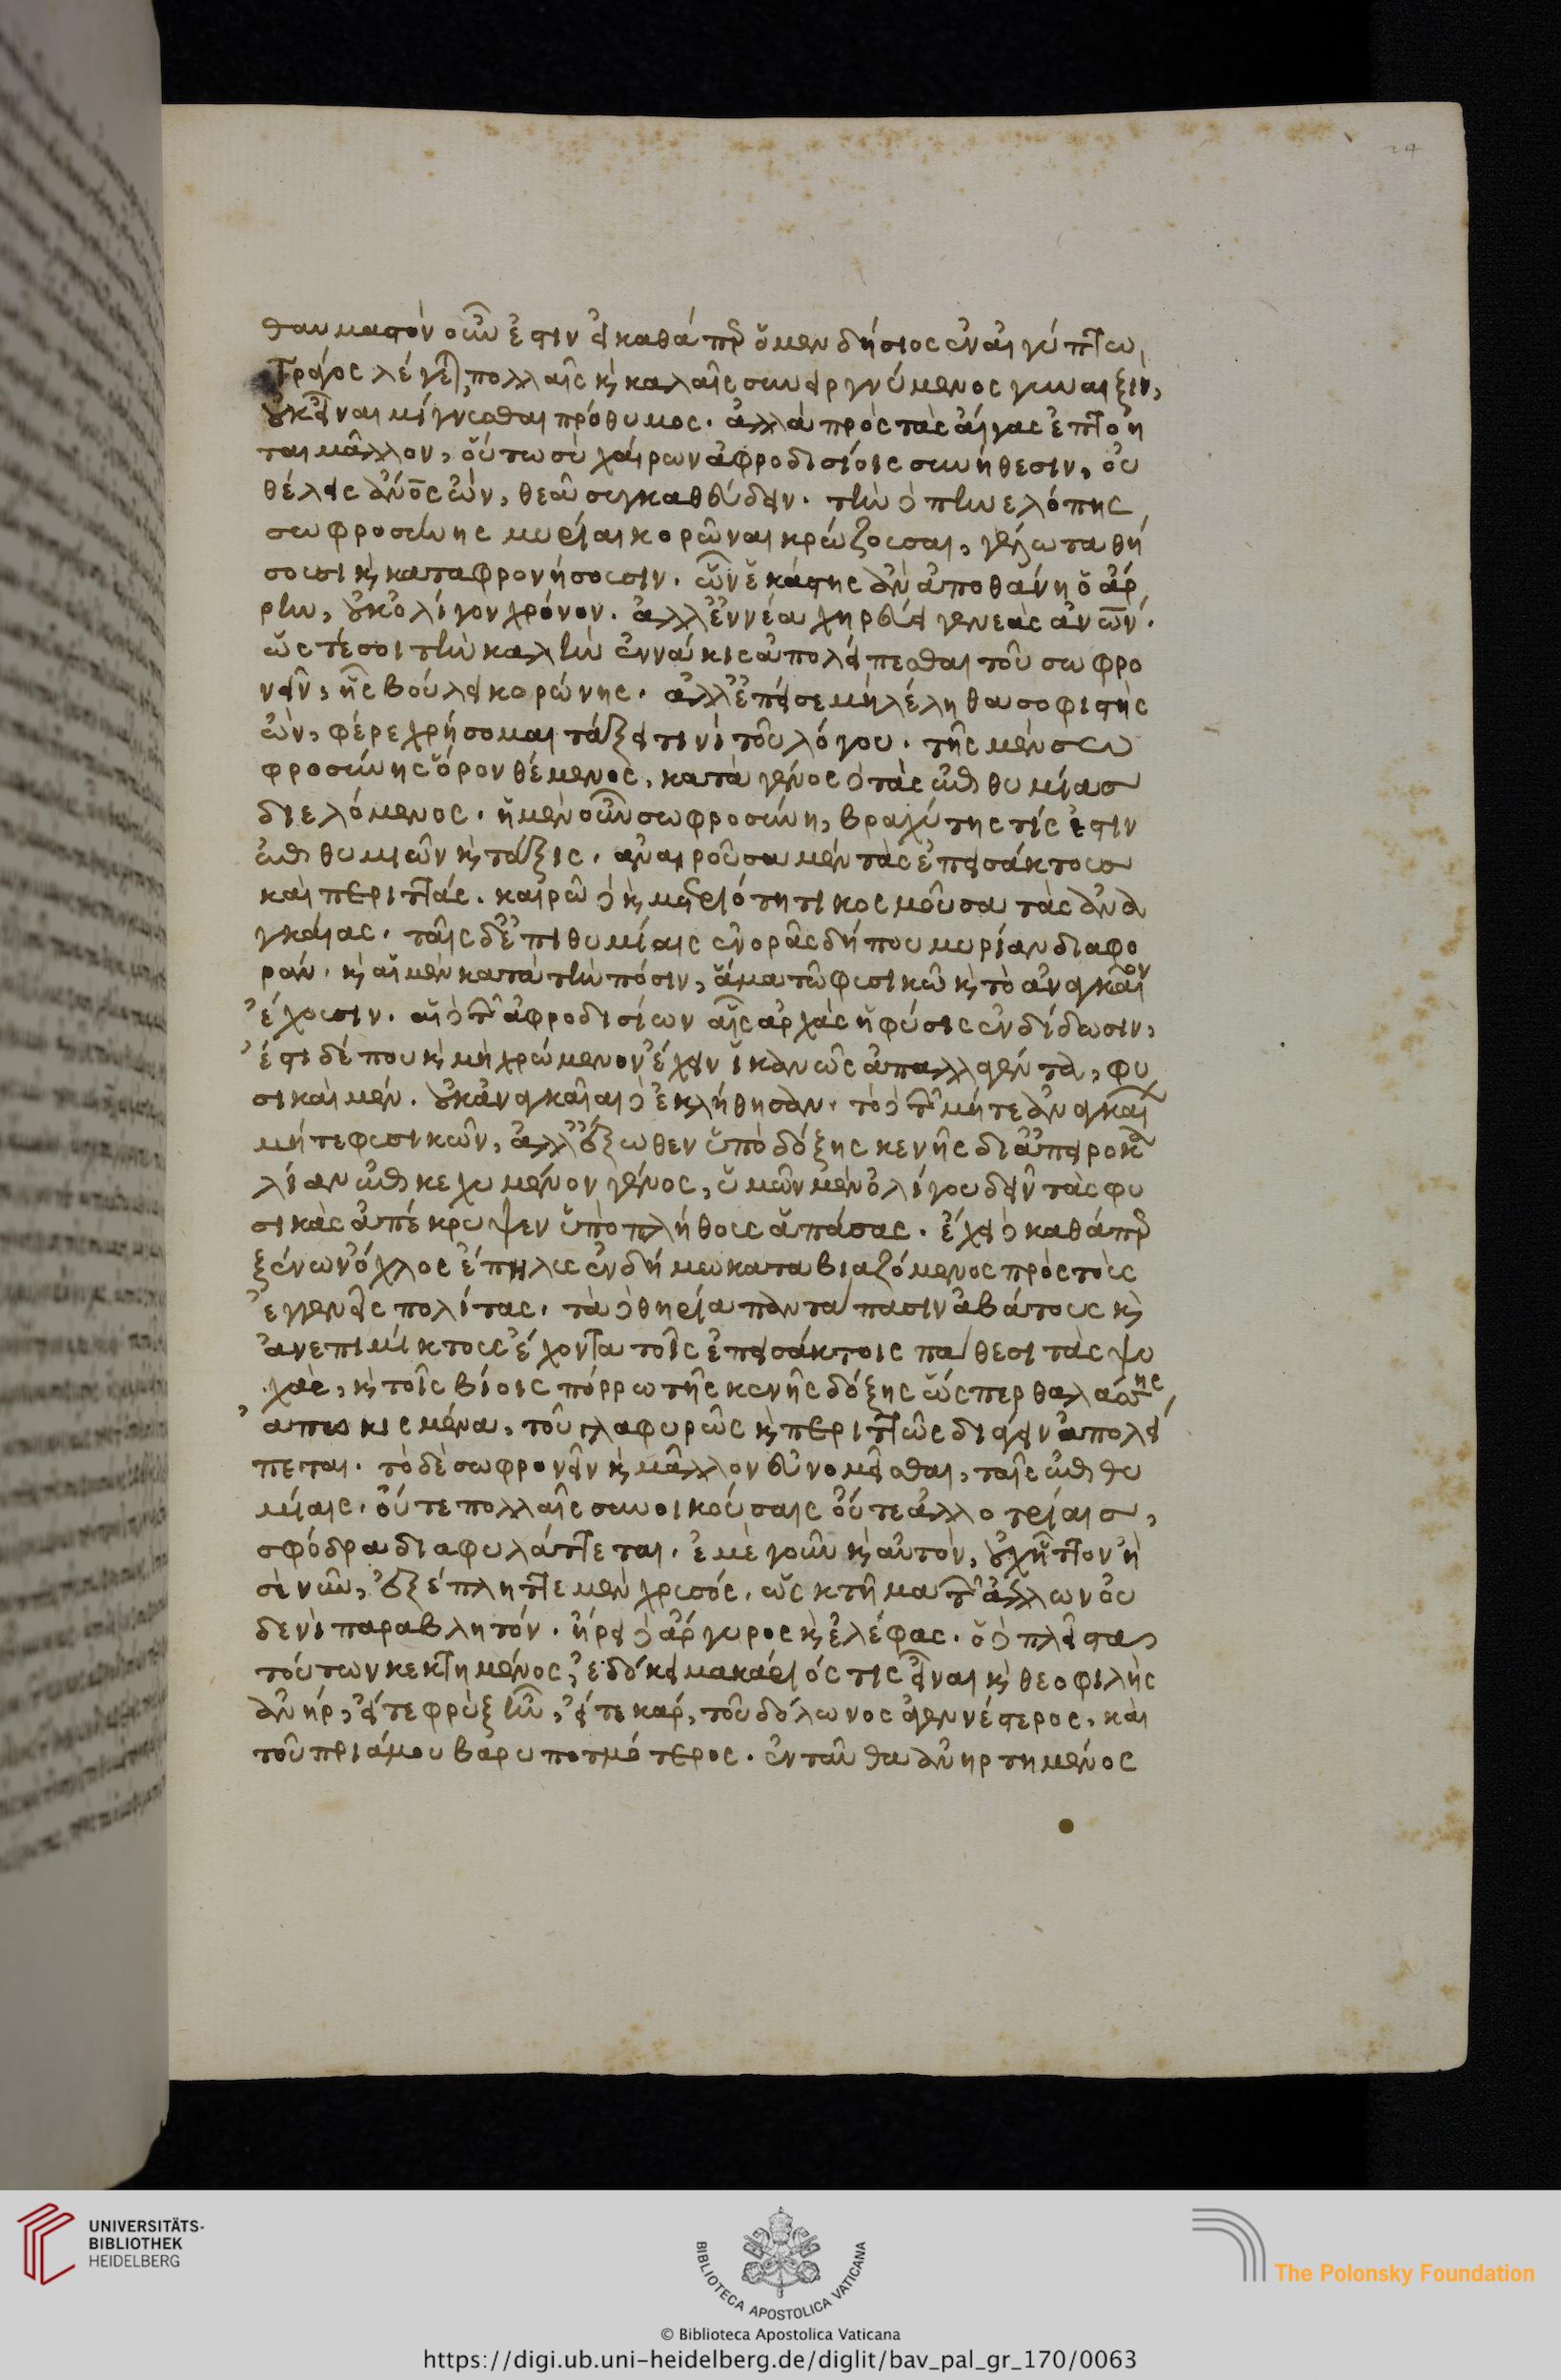 θαυμαστὸν οὖν ἐστιν εἰ καθάπερ ὁ μενδήσιος ἐν αἰγύπτω,
τράγος λέγεται, πολλαῖς καὶ καλαῖς συνειργνύμενος γυναιξὶν,
οὐκ εἶναι μίγνυσθαι πρόθυμος. ἀλλὰ πρὸς τὰς αἶγας ἐπτόη
ται μᾶλλον, οὕτω σὺ χαίρων ἀφροδισίοις συνήθεσιν, οὐ
θέλεις ἄνος ὢν, θεᾶ συγκαθεύδειν. τὴν δὲ πηνελόπης
σωφροσύνης μυρίαι κορῶναι κρώζουσαι, γέλωτα θή
σουσι καὶ καταφρονήσουσιν. ὧν ἑκάστης ἂν ἀποθάνη ὁ ἄρ
ρην, οὐκ ὀλίγον χρόνον. ἀλλ' ἐννέα χηρεύει γενεὰς ἀνων.
ὥς τέ σοι τὴν καλὴν ἐννάκις ἀπολείπεσθαι τοῦ σωφρο
νεῖν, ἧς βούλει κορώνης. ἀλλ' ἐπεί σε μὴ λέληθα σοφιστὴς
ὢν, φέρε χρήσομαι τάξει τινὶ τοῦ λόγου. τῆς μὲν σω
φροσύνης ὅρον θέμενος, κατὰ γένος δὲ τὰς ἐπιθυμίας
διελόμενος. ἡ μὲν οὖν σωφροσύνη, βραχύτης τίς ἐστιν
ἐπιθυμιῶν καὶ τάξις. ἀναιροῦσα μὲν τὰς ἐπεισάκτους
καὶ περιττάς. καιρῶ δὲ καὶ μετριότητι κοσμοῦσα τὰς ἀνα
γκαίας. ταῖς δ' ἐπιθυμίαις ἐνορᾶς δή που μυρίαν διαφο
ράν. καὶ αἱ μὲν κατὰ τὴν πόσιν, ἅμα τῶ φυσικῶ καὶ τὸ ἀναγκαῖον
ἔχουσιν. αἱ δὲ τῶν ἀφροδισίων αἷς ἀρχὰς ἡ φύσις ἐνδίδωσιν,
ἔστι δέ που καὶ μὴ χρώμενον ἔχειν ἱκανῶς ἀπαλλαγέντα, φυ
σικαὶ μέν. οὐκ ἀναγκαῖαι δ' ἐκλήθησαν. τὸ δὲ τῶν μήτε ἀναγκαίων
μήτε φυσικῶν, ἀλλ' ἔξωθεν ὑπὸ δόξης κενῆς δι' ἀπειροκα
λίαν ἐπικεχυμένον γένος, ὑμῶν μὲν ὀλίγου δεῖν τὰς φυ
σικὰς ἀπέκρυψεν ὑπὸ πλήθους ἁπάσας. ἔχει δὲ καθάπερ
ξένων ὄχλος ἔπηλυς ἐν δήμω καταβιαζόμενος πρὸς τοὺς
ἐγγενεῖς πολίτας. τὰ δὲ θηρία παντάπασιν ἀβάτους καὶ
ἀνεπιμίκτους ἔχοντα τοῖς ἐπεισάκτοις πάθεσι τὰς ψυ
χὰς, καὶ τοῖς βίοις πόρρω τῆς κενῆς δόξης ὥσπερ θαλάσσης,
ἀπωκισμένα, τοῦ γλαφυρῶς καὶ περιττῶς διάγειν ἀπολεί
πεται. τὸ δὲ σωφρονεῖν καὶ μᾶλλον εὐνομεῖσθαι, ταῖς ἐπιθυ
μίαις. οὔτε πολλαῖς συνοικούσαις οὔτε ἀλλοτρίαις,
σφόδρα διαφυλάττεται. ἐμὲ γοῦν καὶ αὐτὸν, οὐχ ἧττον ἢ
σὲ νῦν, ἐξέπληττε μὲν χρυσός. ὡς κτῆμα τῶν ἄλλων οὐ
δενὶ παραβλητόν. ἥρει δὲ ἄργυρος καὶ ἐλέφας. ὁ δὲ πλεῖστα
τούτων κεκτημένος, ἐδόκει μακάριός τις εἶναι καὶ θεοφιλὴς
ἀνήρ, εἴτε φρὺξ ἦν, εἴτε καρ, τοῦ δόλωνος ἀγεννέστερος, καὶ
τοῦ πριάμου βαρυποτμότερος. ἐνταῦθα ἀνηρτημένος
UNIVERSITÄTS-
BIBLIOTHEK
HEIDELBERG
BIBLIOTECA APOSTOLICA VATICANA
The Polonsky Foundation
© Biblioteca Apostolica Vaticana
https://digi.ub.uni-heidelberg.de/diglit/bav_pal_gr_170/0063